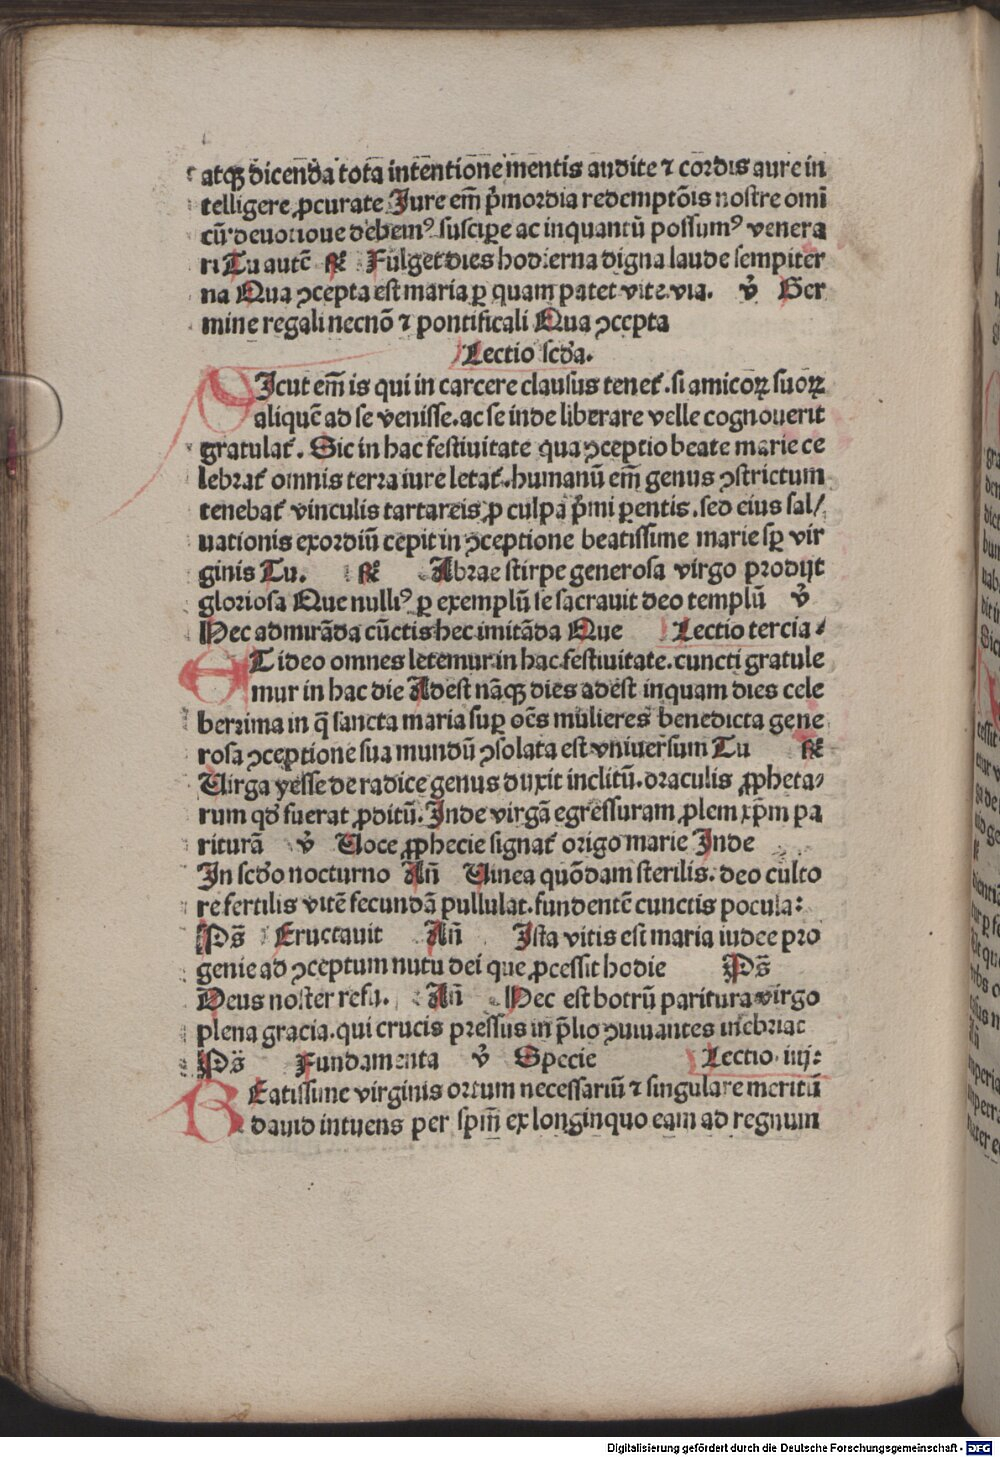 atqꝫ dicenda tota intentione mentis audite ⁊ cordis aure in
telligere ꝓcurate Jure em̄ p̄mordia redemptōis nostre omī
cū deuotioue debemꝰ suscipe ac inquantū possumꝰ venera
ri Tu autē ꝶ Fulget dies hodierna digna laude sempiter
na Qua ꝯcepta est maria ꝑ quam patet vite via. ℣ Ger
mine regali necnō ⁊ pontificali Qua ꝯcepta
Lectio scd'a.
SJcut em̄ is qui in carcere clausus tenet̄. si amicoꝝ suoꝝ
aliquē ad se venisse. ac se inde liberare velle cognouerit
gratulat̄. Sic in hac festiuitate qua ꝯceptio beate marie ce
lebrat̄ omnis terra iure letat̄. humanū em̄ genus ꝯstrictum
tenebat̄ vinculis tartareis ꝓ culpa p̄mi ꝑentis. sed eius sal/
uationis exordiū cepit in ꝯceptione beatissime marie sꝑ vir
ginis Tu. ꝶ Abrae stirpe generosa virgo prodijt
gloriosa Que nulliꝰ ꝑ exemplū se sacrauit deo templū ℣
Hec admirāda cūctis hec imitāda Que Lectio tercia.
ET ideo omnes letemur in hac festiuitate. cuncti gratule
mur in hac die Adest nāqꝫ dies adest inquam dies cele
berrima in q̄ sancta maria suꝑ oēs mulieres benedicta gene
rosa ꝯceptione sua mundū ꝯsolata est vniuersum Tu ꝶ
Uirga yesse de radice genus duxit inclitū. oraculis ꝓpheta/
rum qd' fuerat ꝓditū. Inde virgā egressuram ꝓlem xp̄m pa
riturā ℣ Uoce ꝓphecie signat̄ origo marie Inde
In scd'o nocturno An̄ Uinea quōdam sterilis. deo culto
re fertilis vitē fecundā pullulat. fundentē cunctis pocula:
Ps̄ Eructauit An̄ Ista vitis est maria iudee pro
genie ad ꝯceptum nutu dei que ꝓcessit hodie Ps̄
Deus noster refu. An̄ Hec est botrū paritura virgo
plena gracia. qui crucis pressus in p̄lio ꝯuiuantes inebriat
Ps̄ Fundamenta ℣ Specie Lectio iiij:
BEatissime virginis ortum necessariū ⁊ singulare meritū
dauid intuens per spm̄ ex longinquo eam ad regnum
Digitalisierung gefördert durch die Deutsche Forschungsgemeinschaft - DFG